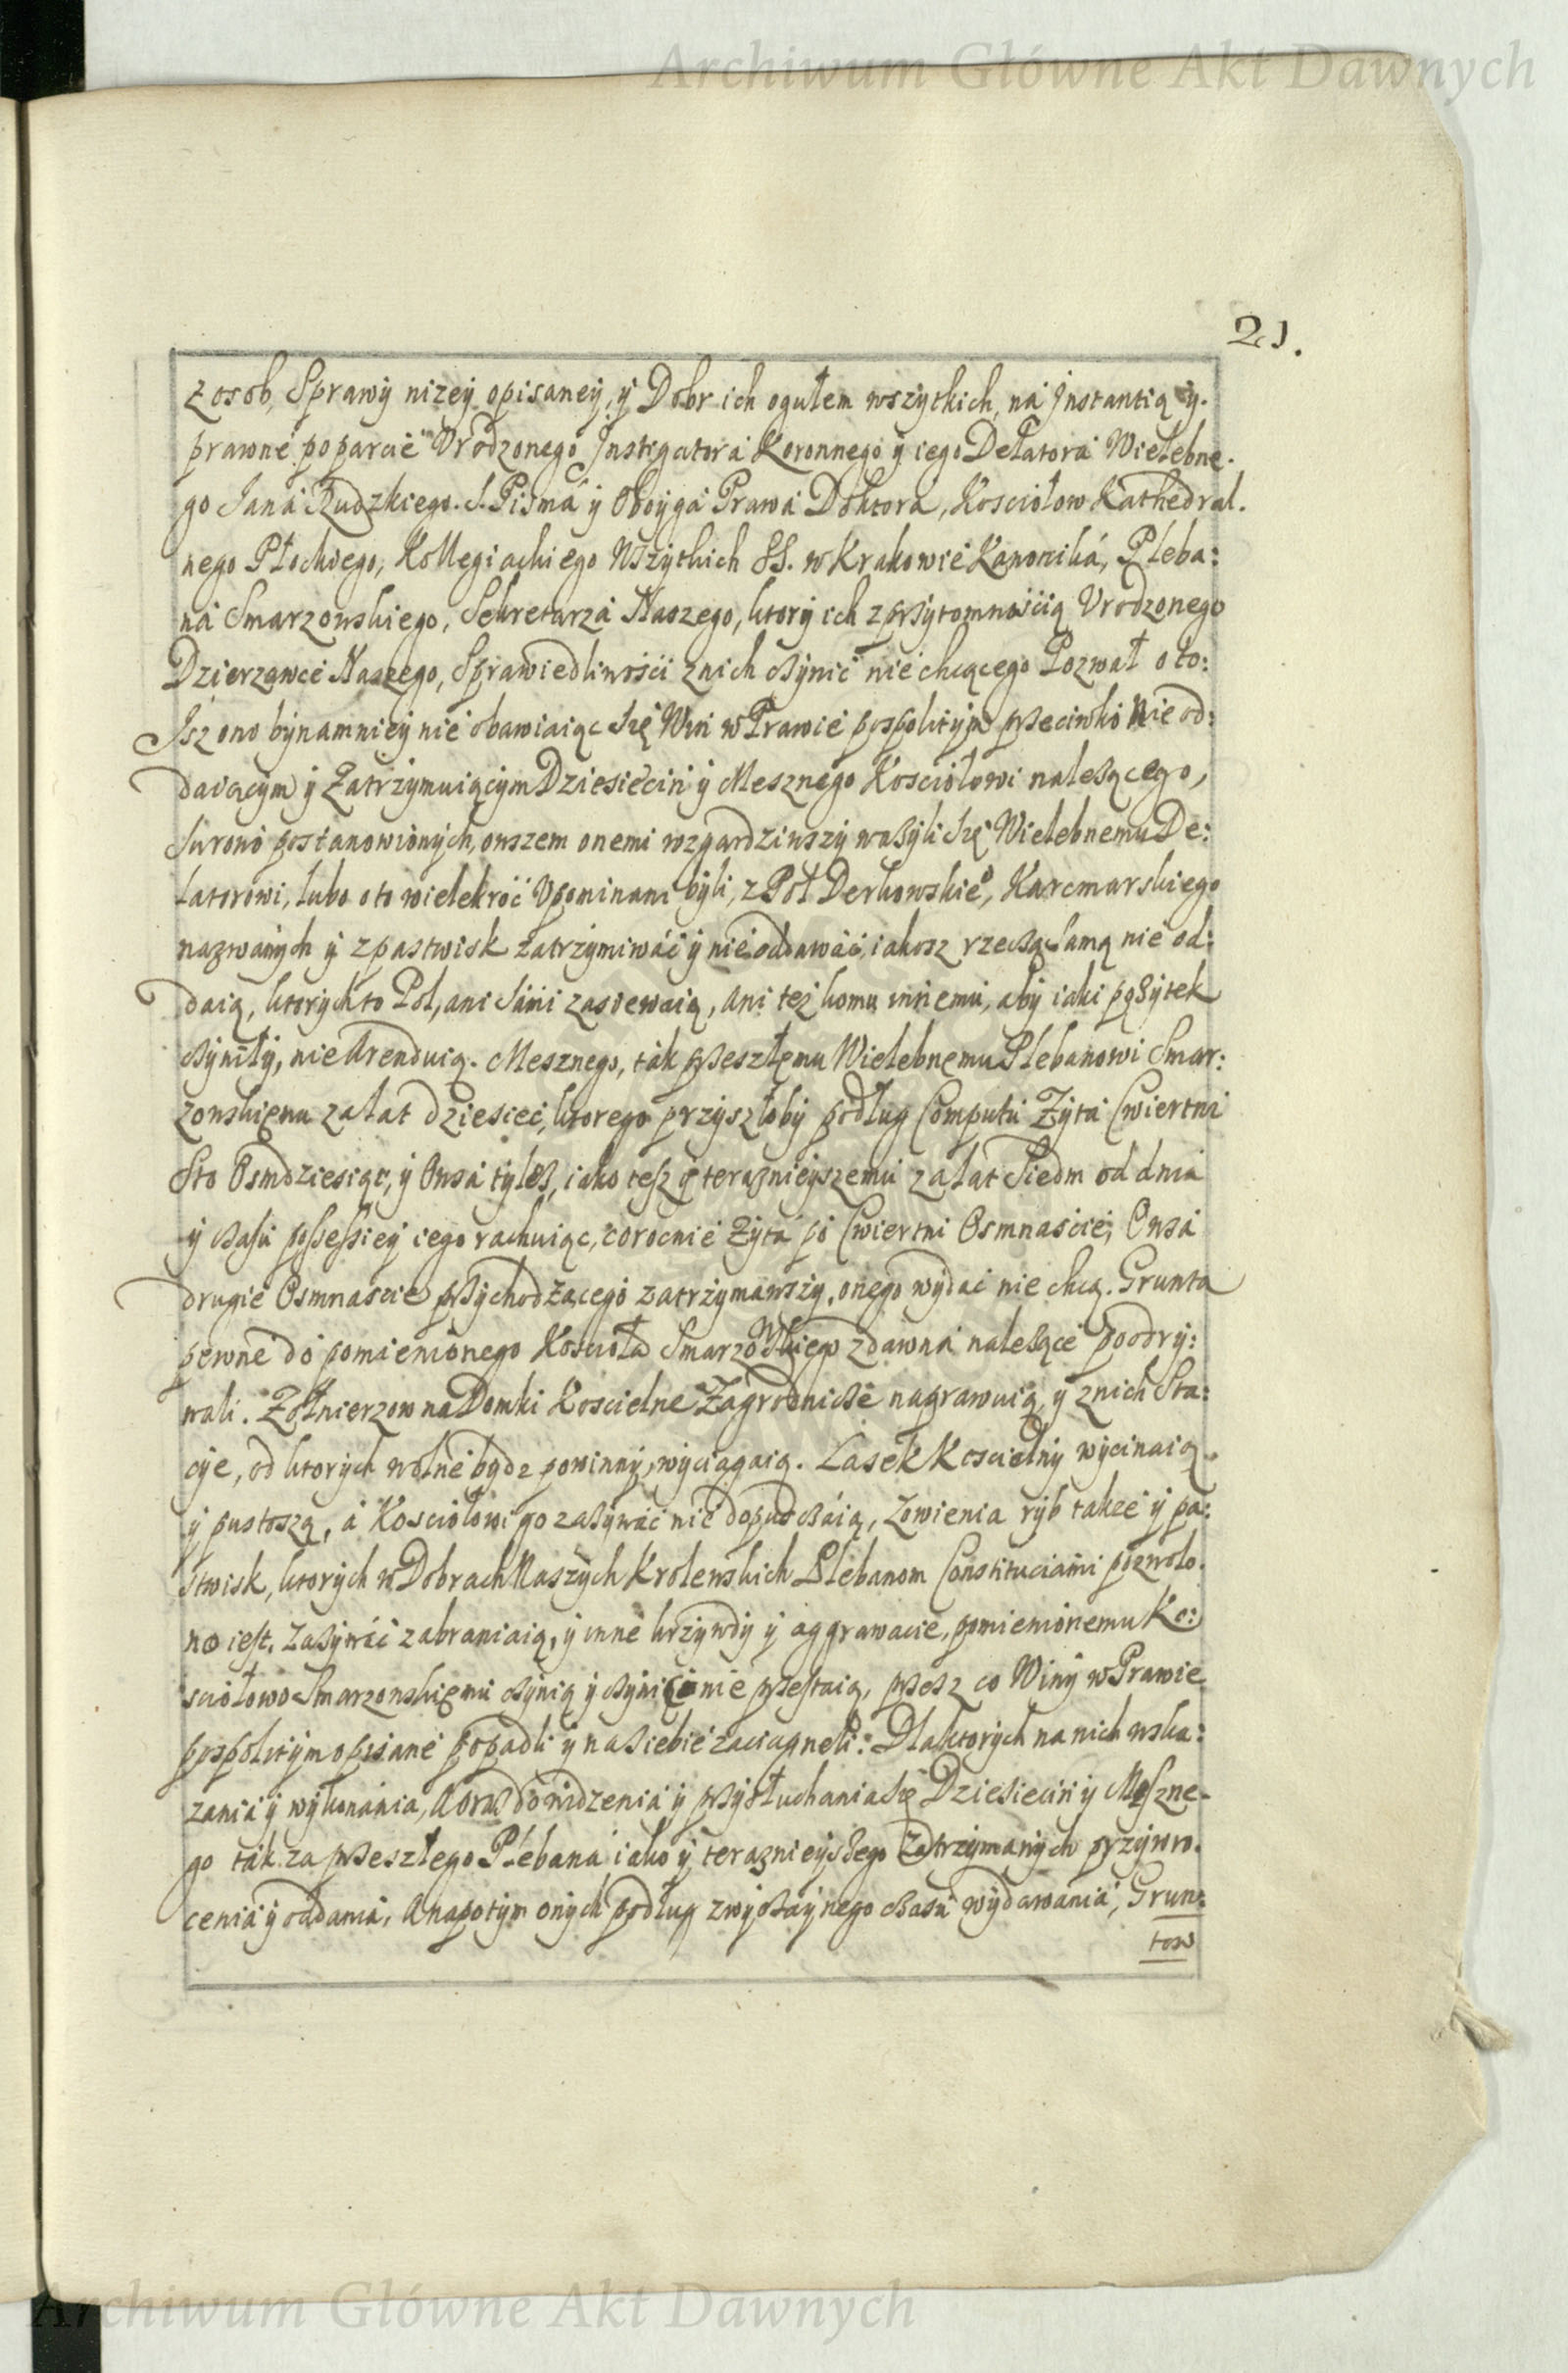 Archiwum Główne Akt Dawnych
21.
z osob, Sprawy nizey opisaney, y Dobr ich ogułem wszytkich, na Jnstantią y.
prawne poparcie Vrodzonego Jnstigatora Koronnego y iego Delatora Wielebne.
go Jana Rudzkiego. S. Pisma y Oboyga Prawa Doktora, Kosciołow Kathedral.
nego Płockiego, Kollegiackiego Wszytkich SS. w Krakowie Kanonika, Pleba:
na Smarzowskiego, Sekretarza Naszego, ktory ich z przytomnością Vrodzonego
Dzierzawce Naszego, Sprawiedliwości z nich czynic nie chcącego Pozwał o to:
Jsz ono bynamniey nie obawiaiąc Się Win w Prawie pospolitym przeciwko nie od:
daiącym y Zatrzymuiącym Dziesiećin y Mesznego Kosciołowi należącego,
Surowo postanowionych, owszem onemi wzgardziwszy ważyli Się Wielebnemu De:
latorowi, lubo o to wielekroć Vpominani byli, z Pol Derkowskieo, Karcmarskiego
nazwanych y z pastwisk zatrzymiwáć y nie oddawać, iakosz rzeczą Samą nie od:
daią, ktorych to Pol, ani Sami zasiewaią, Ani też komu innemu, aby iaki pożytek
czyniły, nie Arenduią. Mesznego, tak przeszłemu Wielebnemu Plebanowi Smar:
zowskiemu za lat dziesieć, ktorego przyszłoby podług Computu Żyta Cwiertni
Sto Osmdziesiąt, y Owsa tylesz, iako tesz y teraznieyszemu za lat Siedm od dnia
y czasu possessiey iego rachuiąc, corocnie Żyta po Cwiertni Osmnaście, Owsa
drugie Osmnascie przychodzącego zatrzymawszy, onego wydać nie chcą. Grunta
pewne do pomienionego Kościoła Smarzowskiego z dawna należące poodry:
wali. Żołnierzow na Domki Koscielne Zagrodnicze naprawuią, y z nich Sta:
cye, od ktorych wolne bydz powinny, wyciągaią. Lasek Koscielny wycinaią.
y pustoszą, á Kosciołowi go zażywać nie dopuszczáią, Łowienia ryb takze y pa:
stwisk, ktorych w Dobrach Naszych Krolewskich Plebanom Constituciami pozwolo.
no iest. Zażywáć zabraniaią, y inne krzywdy y aggrawacie, pomienionemu Ko:
sciołowo Smarzowskiemu czynią y czynić nie przestaią, przesz co Winy w Prawie
pospolitym opisane popadli y na Siebie zaciągneli: Dla ktorych na nich wska:
zania y wykonania, A oraz do widzenia y przysłuchania Się Dziesiecin y Meszne-
go tak za przeszłego Plebana iako y terazniejszego Zatrzymanych przywro.
cenia y oddania, A napotym onych podług zwyczaynego czasu wydawania, Grun:
tow
Archiwum Główne Akt Dawnych